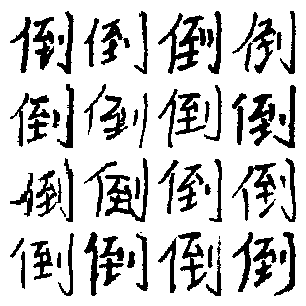 倒倒倒倒
倒倒倒倒
倒倒倒倒
倒倒倒倒